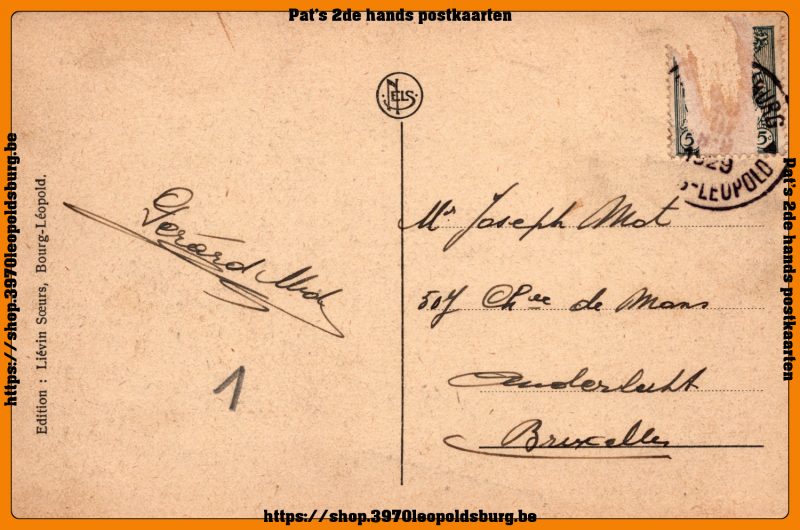 Pat's 2de hands postkaarten
NELS
5c 5c
1929
-LEOPOLD
Mr Joseph Mot
507 Chée de Mons
Anderlecht
Bruxelles
Gérard
1
Edition : Liévin Sœurs, Bourg-Léopold.
https://shop.3970leopoldsburg.be
Pat's 2de hands postkaarten
https://shop.3970leopoldsburg.be